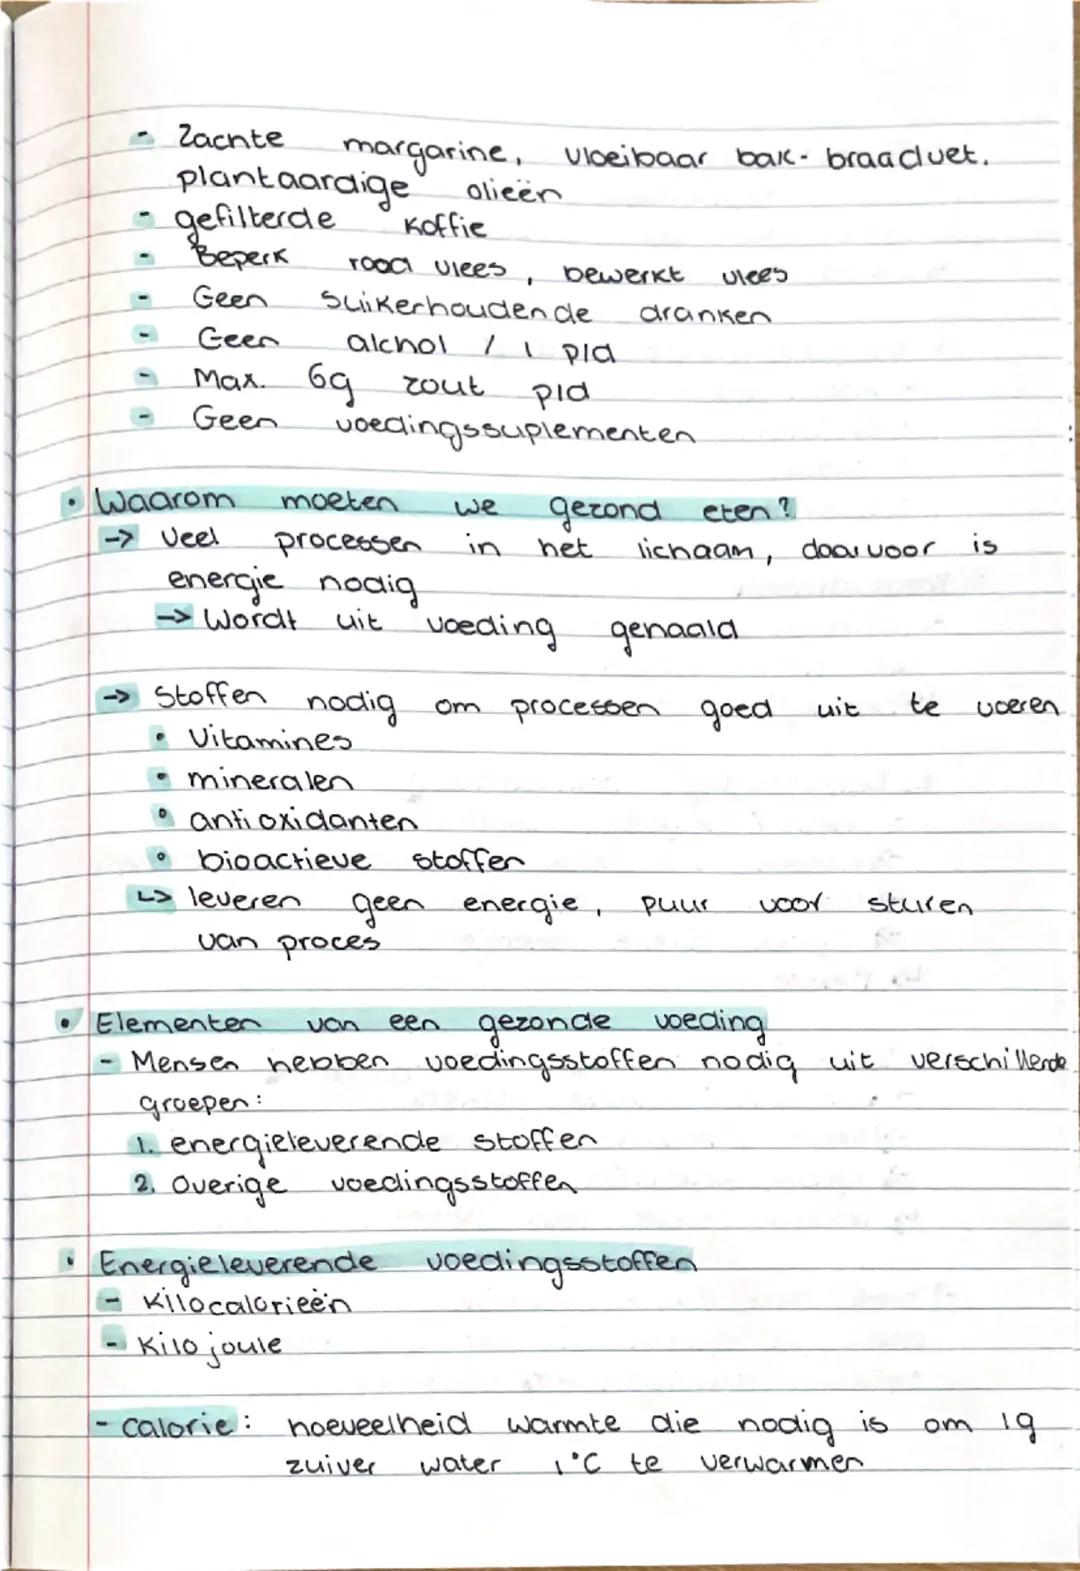 - Zachte margarine, vloeibaar bak- braadvet.
plantaardige olieën
- gefilterde koffie
- Beperk rood vlees, bewerkt vlees
- Geen suikerhoudende dranken
- Geen alchol / 1 p/d
- Max. 6g zout p/d
- Geen voedingssuplementen
• Waarom moeten we gezond eten?
-> Veel processen in het lichaam, daarvoor is
energie nodig
-> Wordt uit voeding gehaald
-> Stoffen nodig om processen goed uit te voeren
• Vitamines
• mineralen
• antioxidanten
• bioactieve stoffen
↳ leveren geen energie, puur voor sturen
van proces
• Elementen van een gezonde voeding
- Mensen hebben voedingsstoffen nodig uit verschillende
groepen:
1. energieleverende stoffen
2. Overige voedingsstoffen
• Energieleverende voedingsstoffen
- Kilocalorieën
- Kilojoule
- calorie: hoeveelheid warmte die nodig is om 1g
zuiver water 1°C te verwarmen